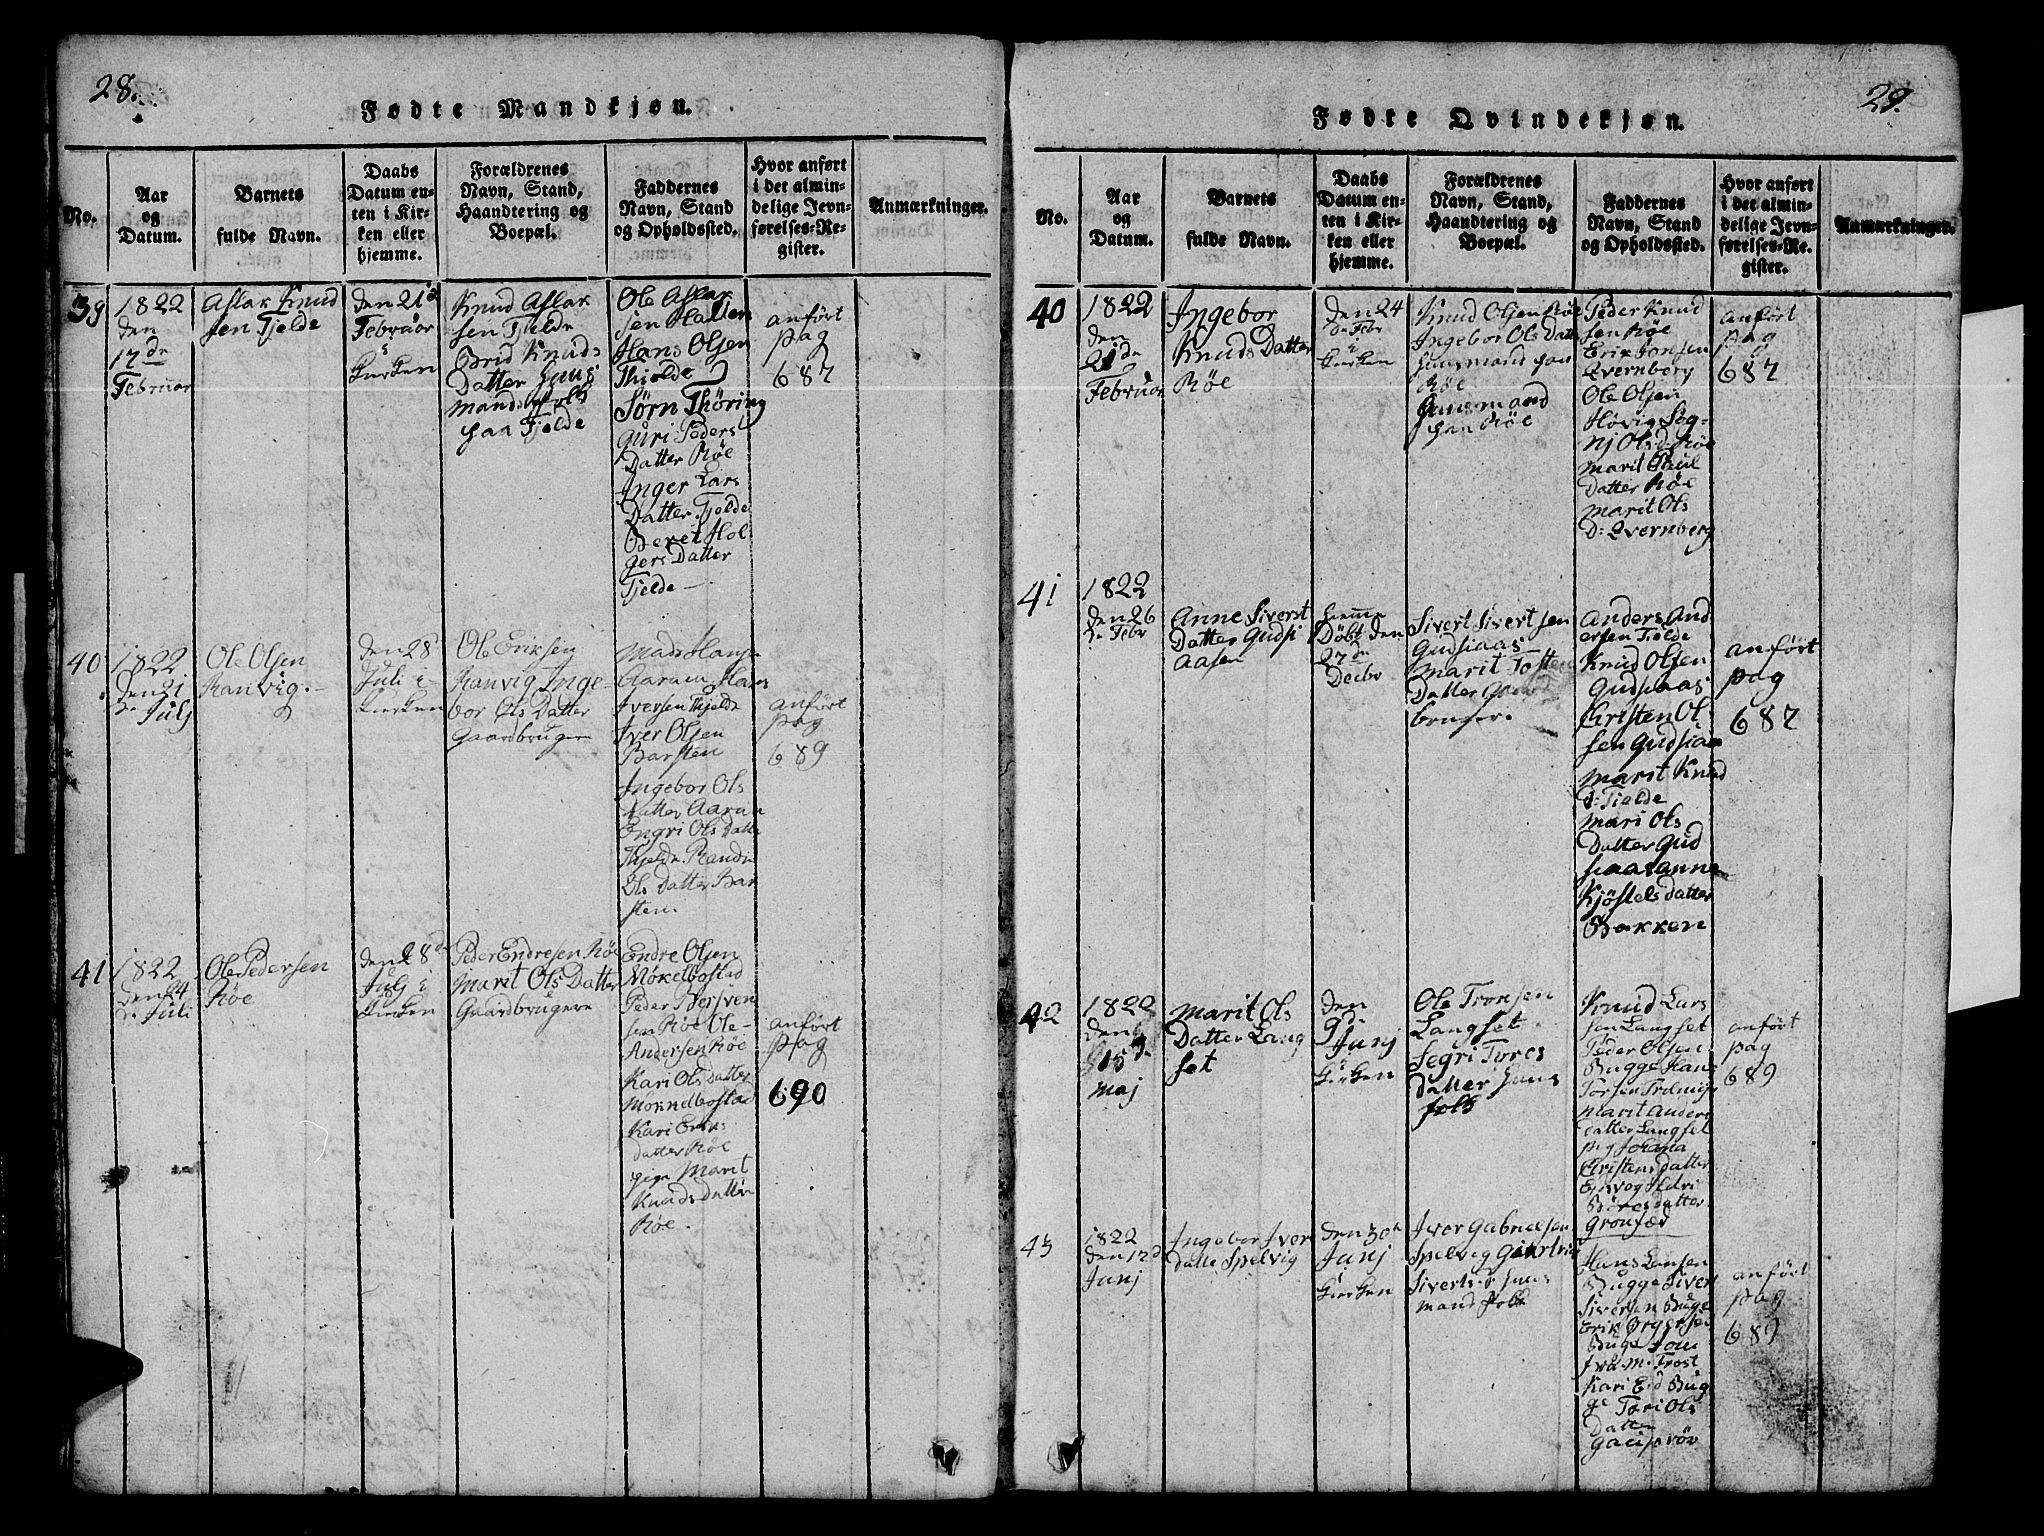 28.
Fødte Mandkjøn.
No.
Aar
og
Datum.
Barnets
fulde Navn.
Daabs
Datum en-
ten i Kir-
ken eller
hjemme.
Forældrenes
Navn, Stand,
Haandtering og
Boepæl.
Faddernes
Navn, Stand
og Opholdssted.
Hvor anført
i det almin-
delige Jevn-
førelses-Re-
gister.
Anmærkninger.
39
1822
den
17de
Februar
Aslak Knud
sen Tjelde
den 21d
Februar
i
kirken
Knud Aslak
sen Tjelde
Brid Knuds
Datter Huus
mandsfolk
paa Tjelde
Ole Aslak
sen Halden
Hans Olsen
Thielde
Sørn Thøring
Guri Peders
Datter Røe
Inger Lars
Datter Tjelde
Beret Hol
gers Datter
Tjelde
anført
pag
687
40
1822
den 21
de Julj
Ole Olsen
Ranvig
den 28
Juli i
kirken
Ole Eriksen
Ranvig Inge
bor Ols Datter
Gaardbrugere
Mads Hansen
Aaram Hans
Iversen Thjelde
Iver Olsen
Barsten
Ingebor Ols
datter Aaram
Engri Ols Datter
Thjelde Randi
Ols Datter Bar
sten.
anført
pag
689
41
1822
den 24
de Juli
Ole Pedersen
Røe
den 28d
Julj i
kirken
Peder Endresen Røe
Marit Ols Datter
Gaardbrugere
Endre Olsen
Mokelbostad
Peder Iversen
Røe Ole
Andersen Røe
Kari Ols datter
Mokkelbostad
Kari Eriks
datter Røe
pige Marit
Knuds datter
Røe.
anført
pag
690
29.
Fødte Qvindekjøn.
No.
Aar
og
Datum.
Barnets
fulde Navn.
Daabs
Datum en-
ten i Kir-
ken eller
hjemme.
Forældrenes
Navn, Stand,
Haandtering og
Boepæl.
Faddernes
Navn, Stand
og Opholdssted.
Hvor anført
i det almin-
delige Jevn-
førelses-Re-
gister.
Anmærkninger.
40
1822
den
21de
Februar
Ingebor
Knuds Datter
Røe
den 24
de Febr
i
kirken
Knud Olsen Røe
Ingebor Ols Datt
Huusmand paa
Røe
Huusmand
paa Røe
Peder Knud
sen Røe
Erik Jonsen
Qvernberg
Ole Olsen
Høvig Sog-
nj Ols d: Røe
Marit Paul
Datter Røe
Marit Ols
D: Qvernberg
anført
pag
687
41
1822
den 26
de Febr
Anne Siverst
Datter Gudsi
aasen
hiemme
Døbt den
27de
Sivert Sivertsen
Gudsiaas
Marit Tosten
Datter Gaard
bruger.
Anders And
ersen Tjelde
Knud Olsen
Gudsiaas
Christen Ol
sen Gudsiaas
Marit Knud
d: Tjelde
Mari Ols
Datter Gud
siaas Anne
Kjøstels datter
Bakken
anført
pag
687
42
1822
den
15de
Maj
Marit Ols
Datter Lang
set
den
9de
Junj
kirken
Ole Tronsen
Langset
Segri Tores
datter Huus
folk
Knud Lars
sen Langset
Peder Olsen
Bugge Hans
Marit Anders
datter Langset
pig Johana
Christens datter
datter
Grønfær
anført
pag
689
43
1822
den 12d
Junj
Ingebor Iver
datte Spelvig
den 30d
Junj
kirken
Iver Gabrielsen
Spelvig
Siverts d Huus
mand folk
Hans Lansen
Bugge Siver
Siversen Buge
Erik
Buge
Kari E:d Bug
ge Tori Ols
Datter
anført
pag
689